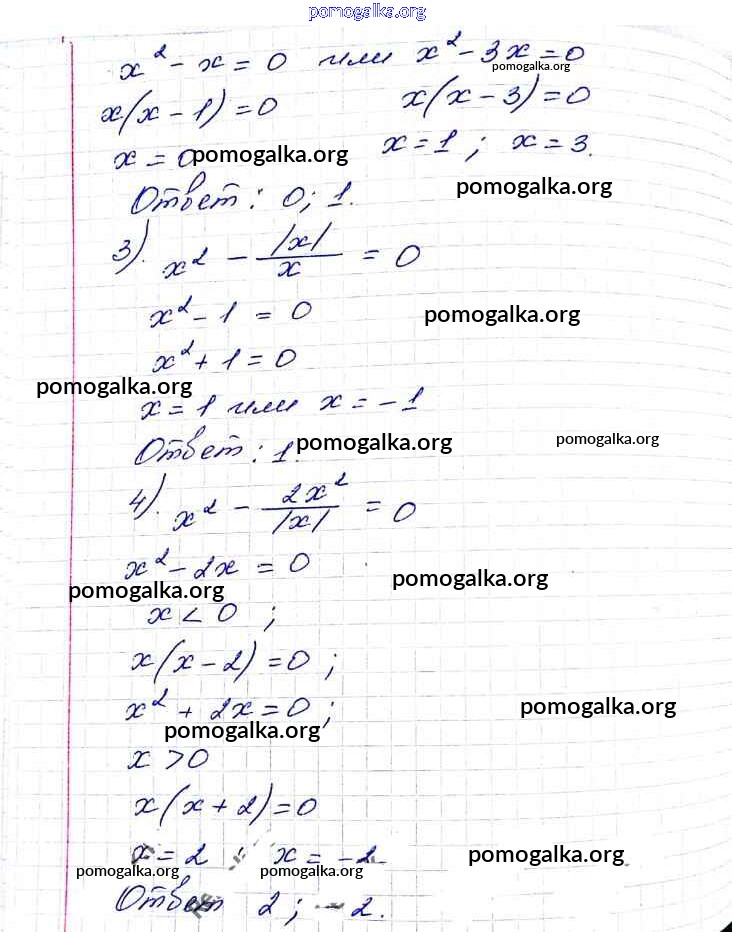 pomogalka.org
x² - x = 0 или x² - 3x = 0
pomogalka.org
x(x - 1) = 0 x(x - 3) = 0
x = 0 x = 1; x = 3.
pomogalka.org
Ответ: 0; 1.
pomogalka.org
3). x² - |x|/x = 0
x² - 1 = 0
pomogalka.org
x² + 1 = 0
pomogalka.org
x = 1 или x = -1
Ответ: 1.
pomogalka.org pomogalka.org
4). x² - 2x²/|x| = 0
x² - 2x = 0
pomogalka.org pomogalka.org
x < 0;
x(x - 2) = 0;
x² + 2x = 0;
pomogalka.org pomogalka.org
x > 0
x(x + 2) = 0
x = 2; x = -2
pomogalka.org
pomogalka.org pomogalka.org
Ответ 2; -2.